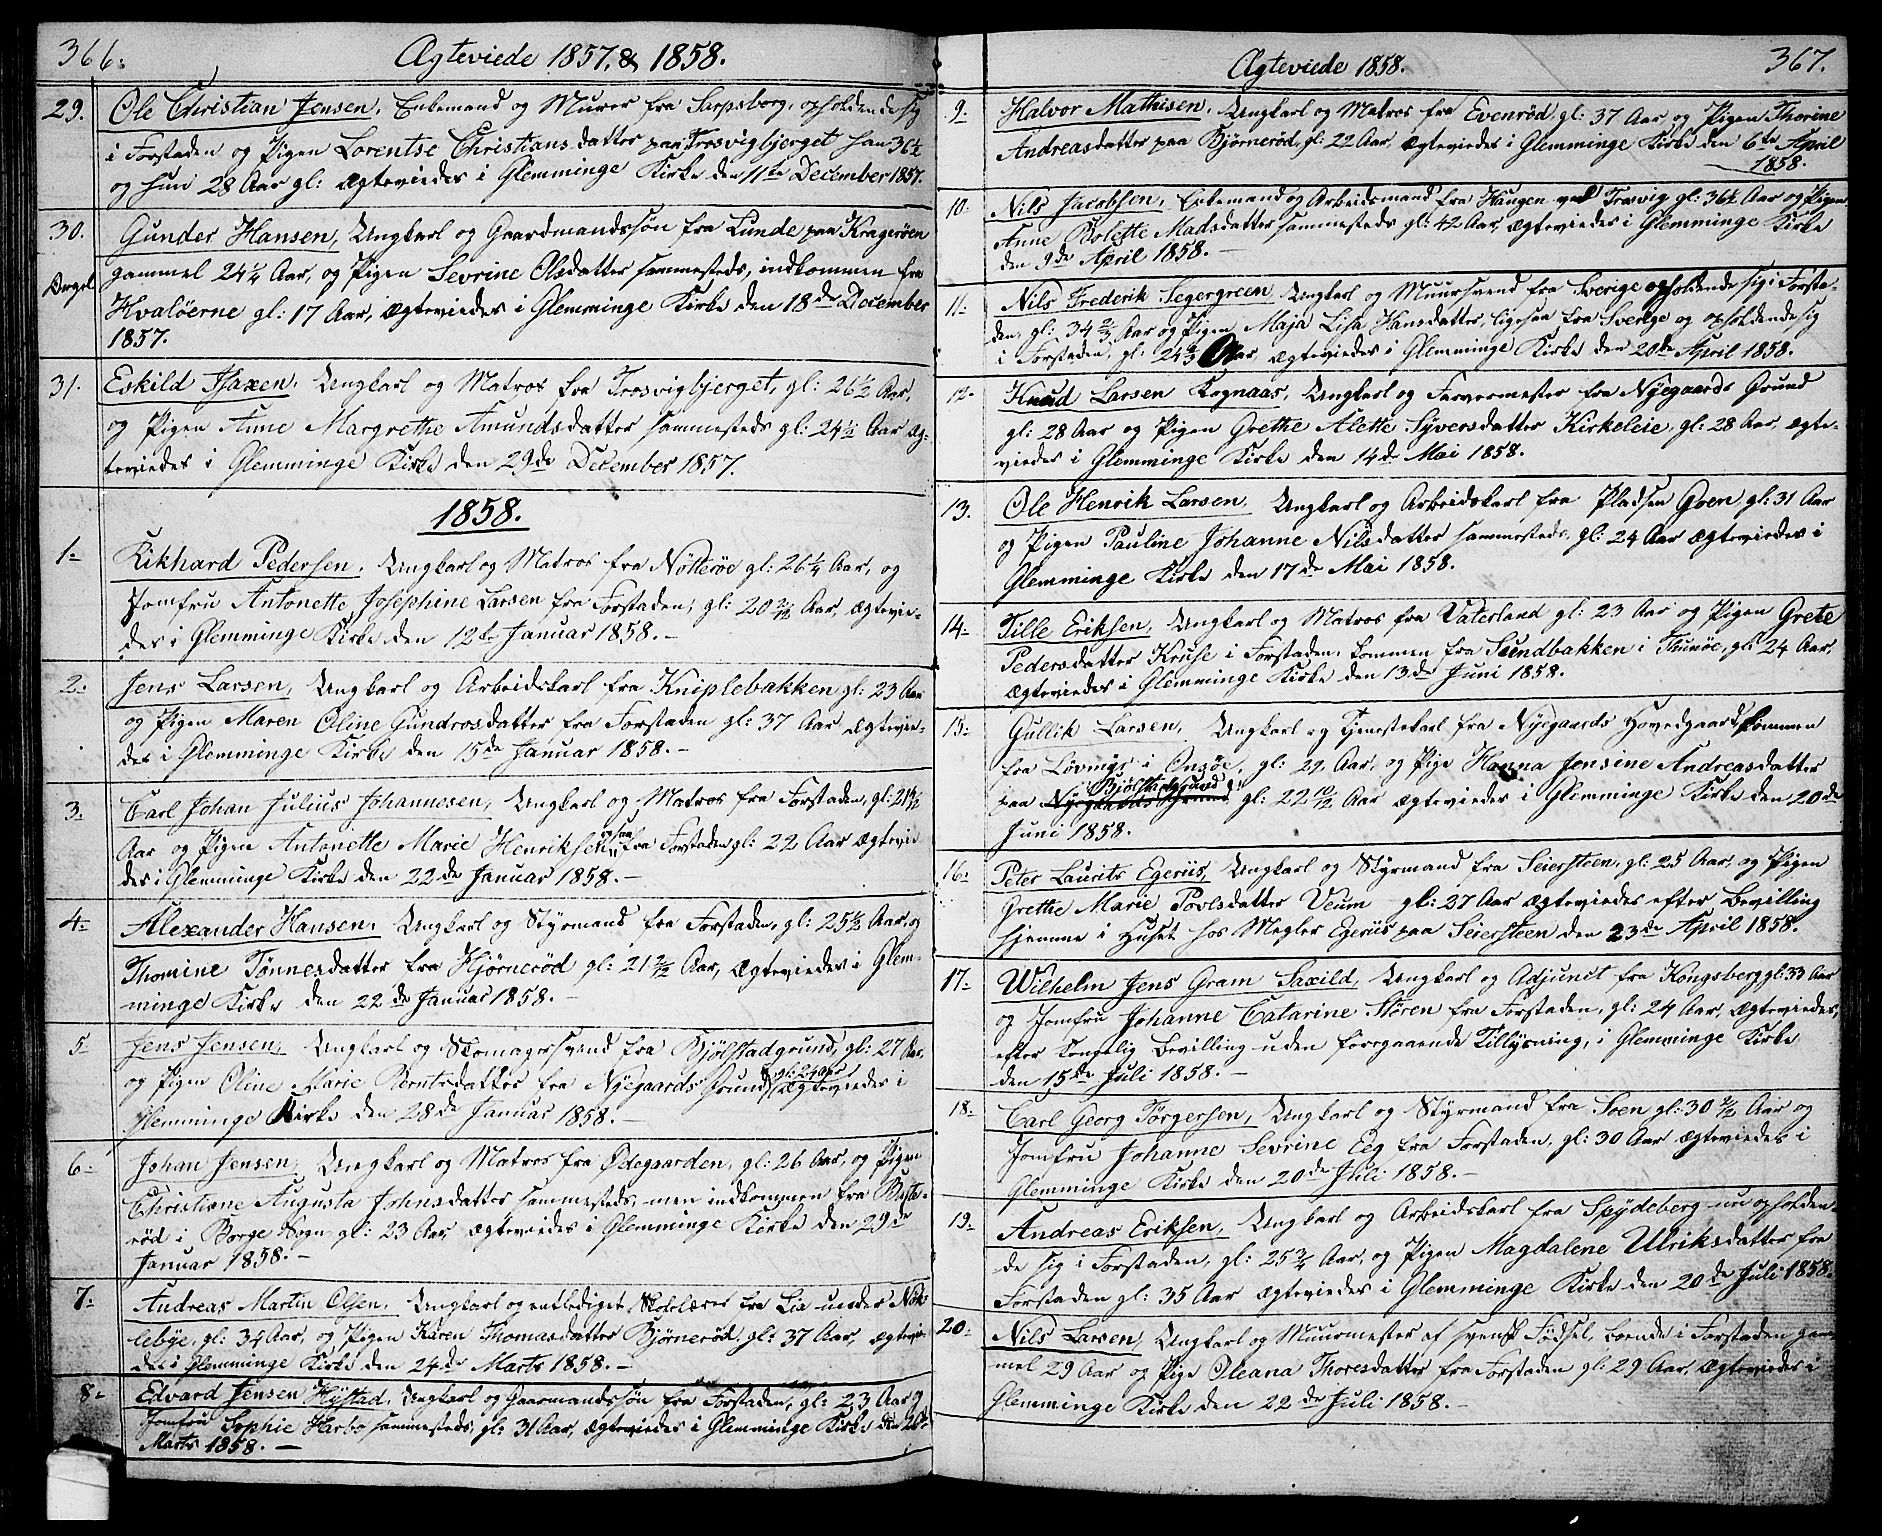 366.
Ægteviede 1857. & 1858.
29. Ole Christian Jensen, Enkemand og Murer fra Sarpsborg, opholdende sig
i Forstaden og Pigen Lorentse Christiansdatter paa Trosvigbjerget han 36½
og hun 28 Aar gl: Ægteviedes i Glemminge Kirke den 11te December 1857.
30. Gunder Hansen, Ungkarl og Gaardmandssøn fra Lunde paa Kragerøen
gammel 24¼ Aar, og Pigen Sevrine Olsdatter sammesteds, indkommen fra
Hvaløerne gl: 17 Aar, Ægteviedes i Glemminge Kirke den 18de December
1857.
31. Eskild Isaxen, Ungkarl og Matros fra Trosvigbjerget, gl: 26½ Aar,
og Pigen Anne Margrethe Amundsdatter sammesteds gl: 24½ Aar Æg-
teviedes i Glemminge Kirke den 29de December 1857.
1858.
1- Rikhard Pedersen, Ungkarl og Matros fra Nötterøe gl: 26¼ Aar, og
Jomfru Antonette Josephine Larsen fra Forstaden, gl: 20 2/12 Aar, Ægtevie-
des i Glemminge Kirke den 12te Januar 1858.-
2- Jens Larsen, Ungkarl og Arbeidskarl fra Kniplebakken gl: 23 Aar
og Pigen Maren Oline Gundrosdatter fra Forstaden gl: 37 Aar Ægtevie-
des i Glemminge Kirke den 15de Januar 1858.-
3. Carl Johan Julius Johannesen, Ungkarl og Matros fra Forstaden, gl:
Aar og Pigen Antonette Marie Henriksen ogsaa fra Forstaden gl: 22 Aar Ægtevie
des i Glemminge Kirke den 22de Januar 1858.-
4- Alexander Hansen, Ungkarl og Styrmand fra Forstaden, gl: 25½ Aar, og
Thomine Tønnesdatter fra Hjørnerød gl: 21 2/12 Aar, Ægteviedes i Glem-
minge Kirke den 22de Januar 1858.-
5 Jens Jensen, Ungkarl og Skomagersvend fra Bjølstadgrund, gl: 27 Aar
og Pigen Oline Marie Berntsdatter fra Nyegaards Grund gl: 24 Aar Ægteviedes i
Glemminge Kirke den 28de Januar 1858.-
6- Johan Jensen, Ungkarl og Matros fra Ødegaarden, gl: 26 Aar, og Pigen
Christiane Augusta Johnsdatter sammesteds, men indkommen fra Buste-
rød i Borge Sogn gl: 23 Aar Ægteviedes i Glemminge Kirke den 29de
Januar 1858.-
7- Andreas Martin Olsen, Ungkarl og entlediget Skolelærer fra Lia under Nok-
lebye, gl: 34 Aar, og Pigen Karen Thomasdatter Bjørnerød gl: 37 Aar, Ægtevie-
des i Glemminge Kirke den 24de Marts 1858.-
8- Edvard Jensen Hystad, Ungkarl og Gaarmandssøn fra Forstaden, gl: 23 Aar og
Jomfru Sophie Harbo sammesteds, gl: 31 Aar, Ægteviedes i Glemminge Kirke den
Marts 1858.-
Ægteviede 1858.
367.
9- Halvor Mathisen, Ungkarl og Matros fra Evenrød, gl: 37 Aar, og Pigen Thorine
Andreasdatter paa Bjørnerød, gl: 22 Aar, Ægteviedes i Glemminge Kirke den 6te April
1858.
10- Nils Jacobsen, Enkemand og Arbeidsmand fra Haugen ved Trosvig gl: 36½ Aar og Pigen
Anne Bolette Madsdatter sammesteds gl: 42 Aar, Ægteviedes i Glemminge Kirke
den 9de April 1858.-
11- Nils Frederik Segergreen, Ungkarl og Muursvend fra Sverige opholdende sig i Forsta-
den, gl: 34 2/3 Aar og Pigen Maja Lisa Hansdatter, ligesaa fra Sverige og opholdende sig
i Forstaden, gl: 24 Aar, Ægteviedes i Glemminge Kirke den 20de April 1858.
12- Knud Larsen Rognaas, Ungkarl og Farvermester fra Nyegaards Grund
gl: 28 Aar og Pigen Grethe Alette Syversdatter Kirkeleie, gl: 28 Aar, Ægte-
viedes i Glemminge Kirke den 14de Mai 1858.
13. Ole Henrik Larsen, Ungkarl og Arbeidskarl fra Pladsen Goen gl: 31 Aar
og Pigen Pauline Johanne Nilsdatter sammesteds, gl: 24 Aar Ægteviedes i
Glemminge Kirke den 17de Mai 1858.
14- Tille Eriksen, Ungkarl og Matros fra Vaterland gl: 23 Aar og Pigen Grete
Pedersdatter Kruse i Forstaden, kommen fra Sundbakken i Thunøe, gl: 24 Aar,
Ægteviedes i Glemminge Kirke den 13de Juni 1858.
15- Gullik Larsen, Ungkarl og Tjenestekarl fra Nyegaards Hovedgaard, kommen
fra Løvings i Onsøe, gl: 29 Aar, og Pige Hanna Jensine Andreasdatter
paa Bjølstadgrund gl: 22 10/12 Aar Ægteviedes i Glemminge Kirke den 20de
Juni 1858.
16- Peter Laurits Egeriis, Ungkarl og Styrmand fra Seiersteen, gl: 25 Aar, og Pigen
Grethe Marie Povlsdatter Veum gl: 27 Aar Ægteviedes efter Bevilling
hjemme i Huset hos Megler Egeriis paa Seiersteen den 23de April 1858.
17- Wilhelm Jens Gram Saxild, Ungkarl og Adjunct fra Kongsberg gl: 33 Aar
og Jomfru Johanne Catarine Støren fra Forstaden, gl: 24 Aar, Ægteviedes,
efter Kongelig Bevilling uden foregaaende Tillysning, i Glemminge Kirke
den 15de Juli 1858.-
18- Carl Georg Torgersen, Ungkarl og Styrmand fra Soen gl: 30 2/12 Aar og
Jomfru Johanne Sevrine Eeg fra Forstaden, gl: 30 Aar Ægteviedes i
Glemminge Kirke den 20de Juli 1858.-
19- Andreas Eriksen, Ungkarl og Arbeidskarl fra Spydeberg nu opholden-
de sig i Forstaden, gl: 25¾ Aar, og Pigen Magdalene Ulriksdatter fra
Forstaden gl: 35 Aar Ægteviedes i Glemminge Kirke den 20de Juli 1858.
20- Nils Larsen, Ungkarl og Muurmester af svensk Fødsel, boende i Forstaden gam
mel 29 Aar og Pige Oleana Thoresdatter fra Forstaden gl: 29 Aar, Ægteviedes i
Glemminge Kirke den 22de Juli 1858.-